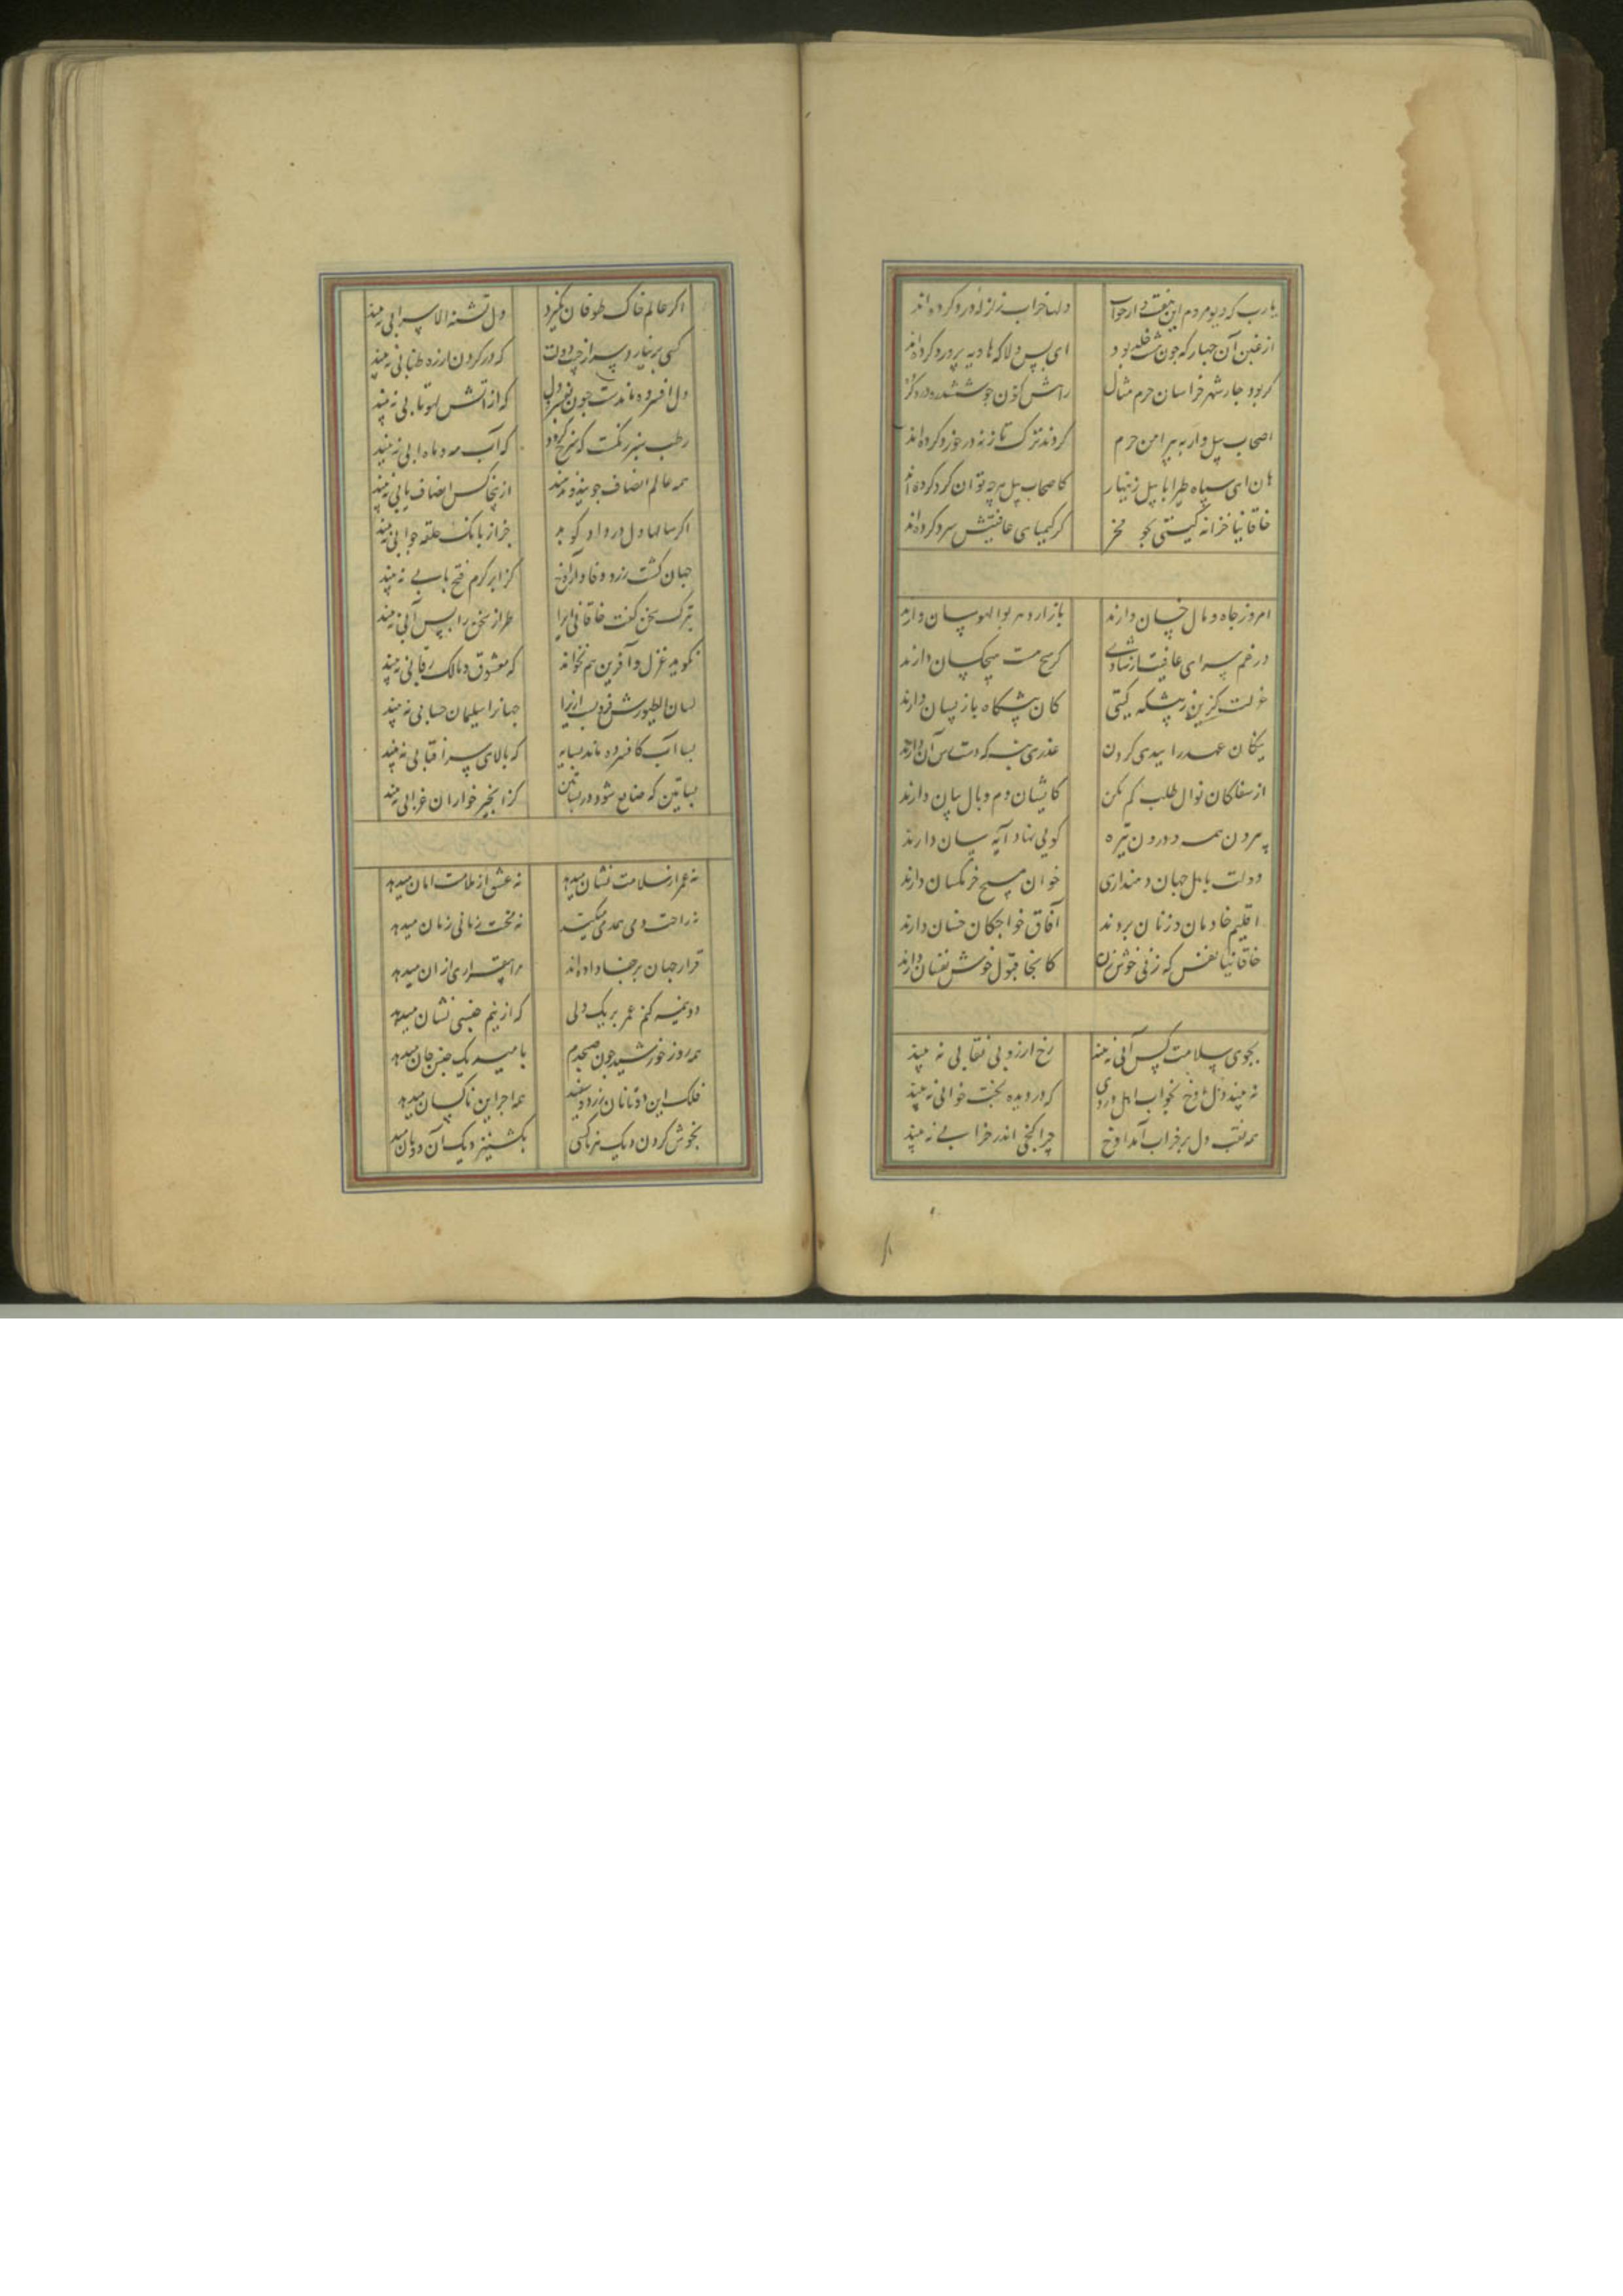 یارب که دیو مردم این هفت دار حرب دلها خراب زلزله درد کرده اند
از غبن آن جهار که جون هشت خلد بود ای بس دلا که هاویه پرورد کرده اند
کر بود جار شهر خراسان حرم مثال راهش کنون جو ششدره
اصحاب پیل وار به پیرامن حرم کردند ترک تاز نه در خورد کرده اند
هان ای سپاه طیرا ابابیل زینهار کاصحاب پیل هرچه توان کرد کرده اند
خاقانیا خزانه کیتی بجو مخر کز کیمیای عافیتش سرد کرده اند
امروز جاه و مال خسان دارند بازار دهر بوالهوسان دارند
در غم سرای عافیت از شادی کر هست هیچکسان دارند
عزلت کزین ز پیشکه کیتی کان پیشکاه بازپسان دارند
نیکان عهد را ببدی کردن عذری بنه که دسترس آن دارند
از سفلکان نوال طلب کم کن کایشان دم وبال رسان دارند
بیرون همه و درون تیره کویی نهاد آینه سان دارند
دولت باهل جهل جهان دادند خوان مسیح خرمکسان دارند
اقلیم خادمان و زنان بردند آفاق خواجکان خسان دارند
خاقانیا نفس که زنی خوش زن کاینجا قبول خوش نفسان دارند
بجوی سلامت کس آبی نه بیند رخ آرزو بی نقابی نه بیند
نه بیند دل آوخ بخواب اهل دردی که در دیده بخت خوابی نه بیند
همه نقب دل بر خراب آمد اوخ چرا کنجی اندر خرابی نه بیند
اکر عالم خاک طوفان بکیرد دل تشنه الا سرابی نه بیند
کسی برنیارد سر از جیب دولت که در کردن ارزه طنابی نه بیند
دل افسرده ماندست جون نفسرد دل که از آتش لهو تابی نه بیند
رطب سبز رنکست کی سرخ کردد که آب مه و ماه ابی نه بیند
همه عالم انصاف جویند و ندهند ازینجا کس انصاف یابی نه بیند
اکر سالها دل در داد کوبد بجز از بانک حلقه جوابی نه بیند
جهان کشت زرد وفا دارد اوخ کز ابر کرم فتح بابی نه بیند
بترک سخن کفت خاقانی ایرا طراز سخن را بس آبی نه بیند
نکوید غزل و آفرین هم نخواند که معشوق و مالک رقابی نه بیند
لسان الطیورش فرو بست ازیرا جهانرا سلیمان جنابی نه بیند
بسا آب کافسرده ماند بسایه که بالای سر آفتابی نه بیند
بسا تین که ضایع شود در بساتین کز انجیر خواران غرابی نه بیند
نه عمر از سلامت نشان میدهد نه عشق از ملامت امان میدهد
نه راحت دمی همدمی میکند نه محنت زمانی زمان میدهد
قرار جهان بر جفا داده اند مرا بیقراری از ان میدهد
دو نیمه کنم عمر بر یک دلی که از نیم جنسی نشان میدهد
همه روز خورشید جون صبحدم بامید یک جنس جان میدهد
فلک این دو تا نان زرد و سفید همه اجر این ناکسان میدهد
بخوش کردن دیک هر ناکسی بکشنیز دیک آن دو نان میدهد